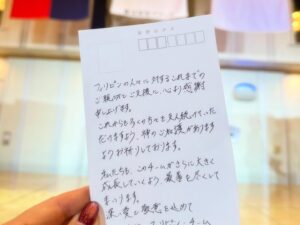 フィリピンの人々に対するこれまでの
ご協力とご支援に、心より感謝
申し上げます。
これからも多くの方々を支え続けていた
だけますよう、神のご加護があります
ようお祈りしております。
私たちも、このチームがさらに大きく
成長していくよう、最善を尽くして
まいります。
深い愛と敬意を込めて
フィリピン・チーム